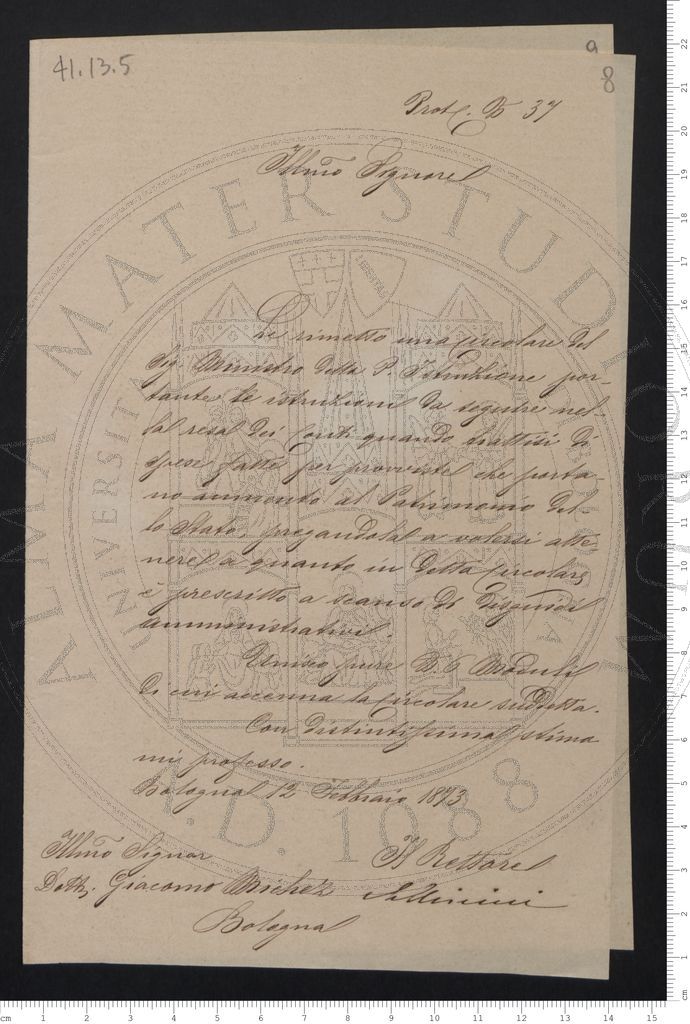 41.13.5
9
8
Prot. N 37
Illmo Signore
Le rimetto una circolare del
Sig. Ministro della P. Istruzione por-
tante le istruzioni da seguire nel-
la resa dei conti quando trattisi di
spese fatte per provviste che porta-
no aumento al Patrimonio del-
lo Stato, pregandola a volersi atte-
nere a quanto in detta circolare
è prescritto a scanso di disguidi
amministrativi.
Unisco pure N. 6 Moduli
di cui accenna la circolare suddetta.
Con distintissima stima
mi professo.
Bologna 12 Febbraio 1873
Illmo Signor
Il Rettore
Dott. Giacomo
Bologna
ALMA MATER STUDIORUM
UNIVERSITÀ
A.D. 1088